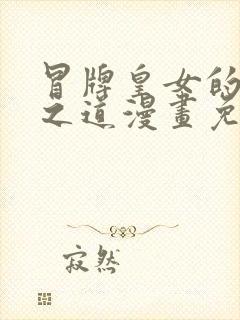 冒牌皇女的
之道漫畫免
寂然